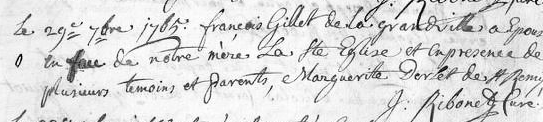 Le 29e 7bre 1765. françois Gillet de la grandville a Epous
o en face de notre mere La Ste Eglise et en presence de
plusieurs temoins et parents, Marguerite Derlet de St Remy
J. Ribonet Curé.